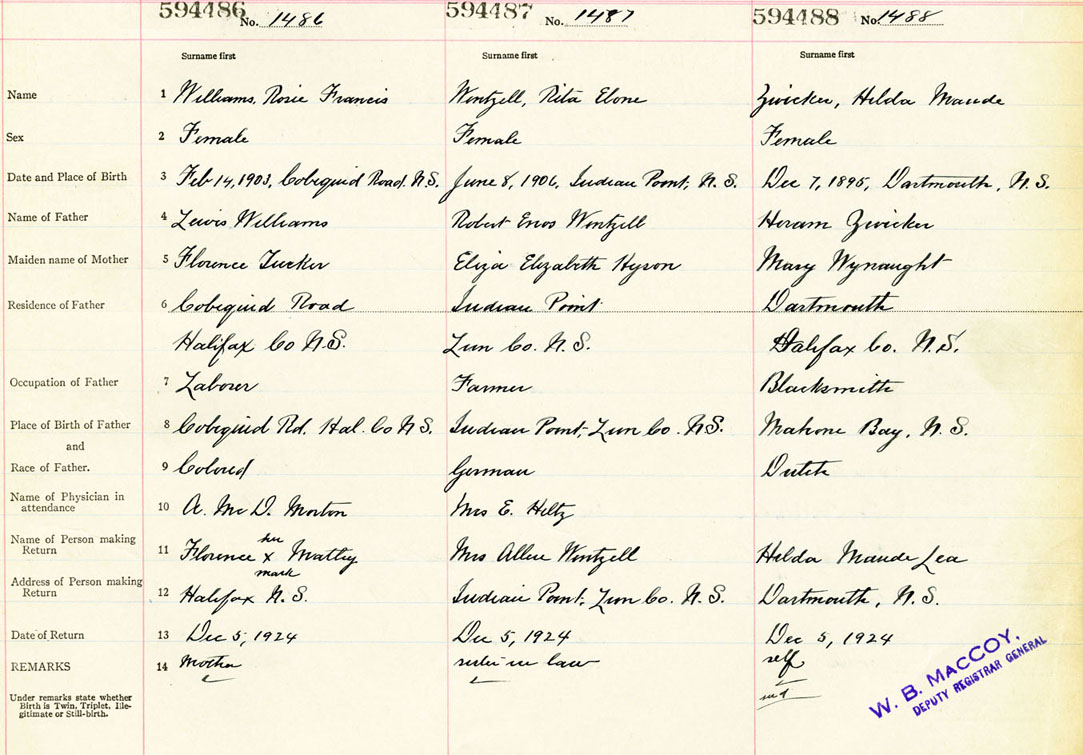 594486 No. 1486 594487 No. 1487 594488 No. 1488
Surname first Surname first Surname first
Name 1 Williams, Rosie Francis Wentzell, Rita Elone Zwicker, Hilda Maude
Sex 2 Female Female Female
Date and Place of Birth 3 Feb 14, 1903, Cobequid Road. N.S. June 8, 1906, Indian Point, N.S. Dec 7, 1895, Dartmouth, N.S.
Name of Father 4 Lewis Williams Robert Enos Wentzell Hiram Zwicker
Maiden name of Mother 5 Florence Tucker Eliza Elizabeth Hyson Mary Wynaught
Residence of Father 6 Cobequid Road Indian Point Dartmouth
Halifax Co N.S. Lun Co. N.S. Halifax Co. N.S.
Occupation of Father 7 Laborer Farmer Blacksmith
Place of Birth of Father 8 Cobequid Rd. Hal. Co N.S. Indian Point, Lun Co. N.S. Mahone Bay, N.S.
and
Race of Father. 9 Colored German Dutch
Name of Physician in
attendance 10 A. Mc D. Morton Mrs E. Hiltz
Name of Person making
Return 11 Florence her x mark Mrs Allen Wentzell Hilda Maude Lea
Address of Person making
Return 12 Halifax N.S. Indian Point, Lun Co. N.S. Dartmouth, N.S.
Date of Return 13 Dec 5, 1924 Dec 5, 1924 Dec 5, 1924
REMARKS 14 Mother sister in law self
Under remarks state whether
Birth is Twin, Triplet, Ille-
gitimate or Still-birth.
W. B. MACCOY,
DEPUTY REGISTRAR GENERAL